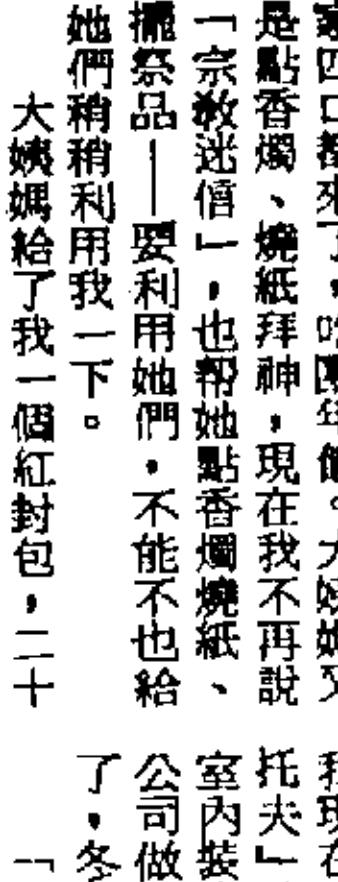 家四口都來了,吃團年飯。大姨媽又
是點香燭、燒紙拜神,現在我不再說
「宗教迷信」,也幫她點香燭燒紙、
擺祭品——要利用她們,不能不也給
她們稍稍利用我一下。
大姨媽給了我一個紅封包,二十
我現在
托夫」
室內裝
公司做
了,冬
「